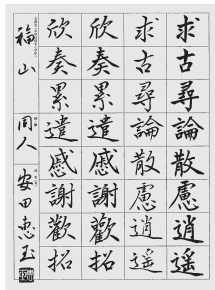 求古尋論散慮逍遥
求古尋論散慮逍遥
欣奏累遣慼謝歡招
欣奏累遣慼謝歡招
福山 同人 安田惠玉